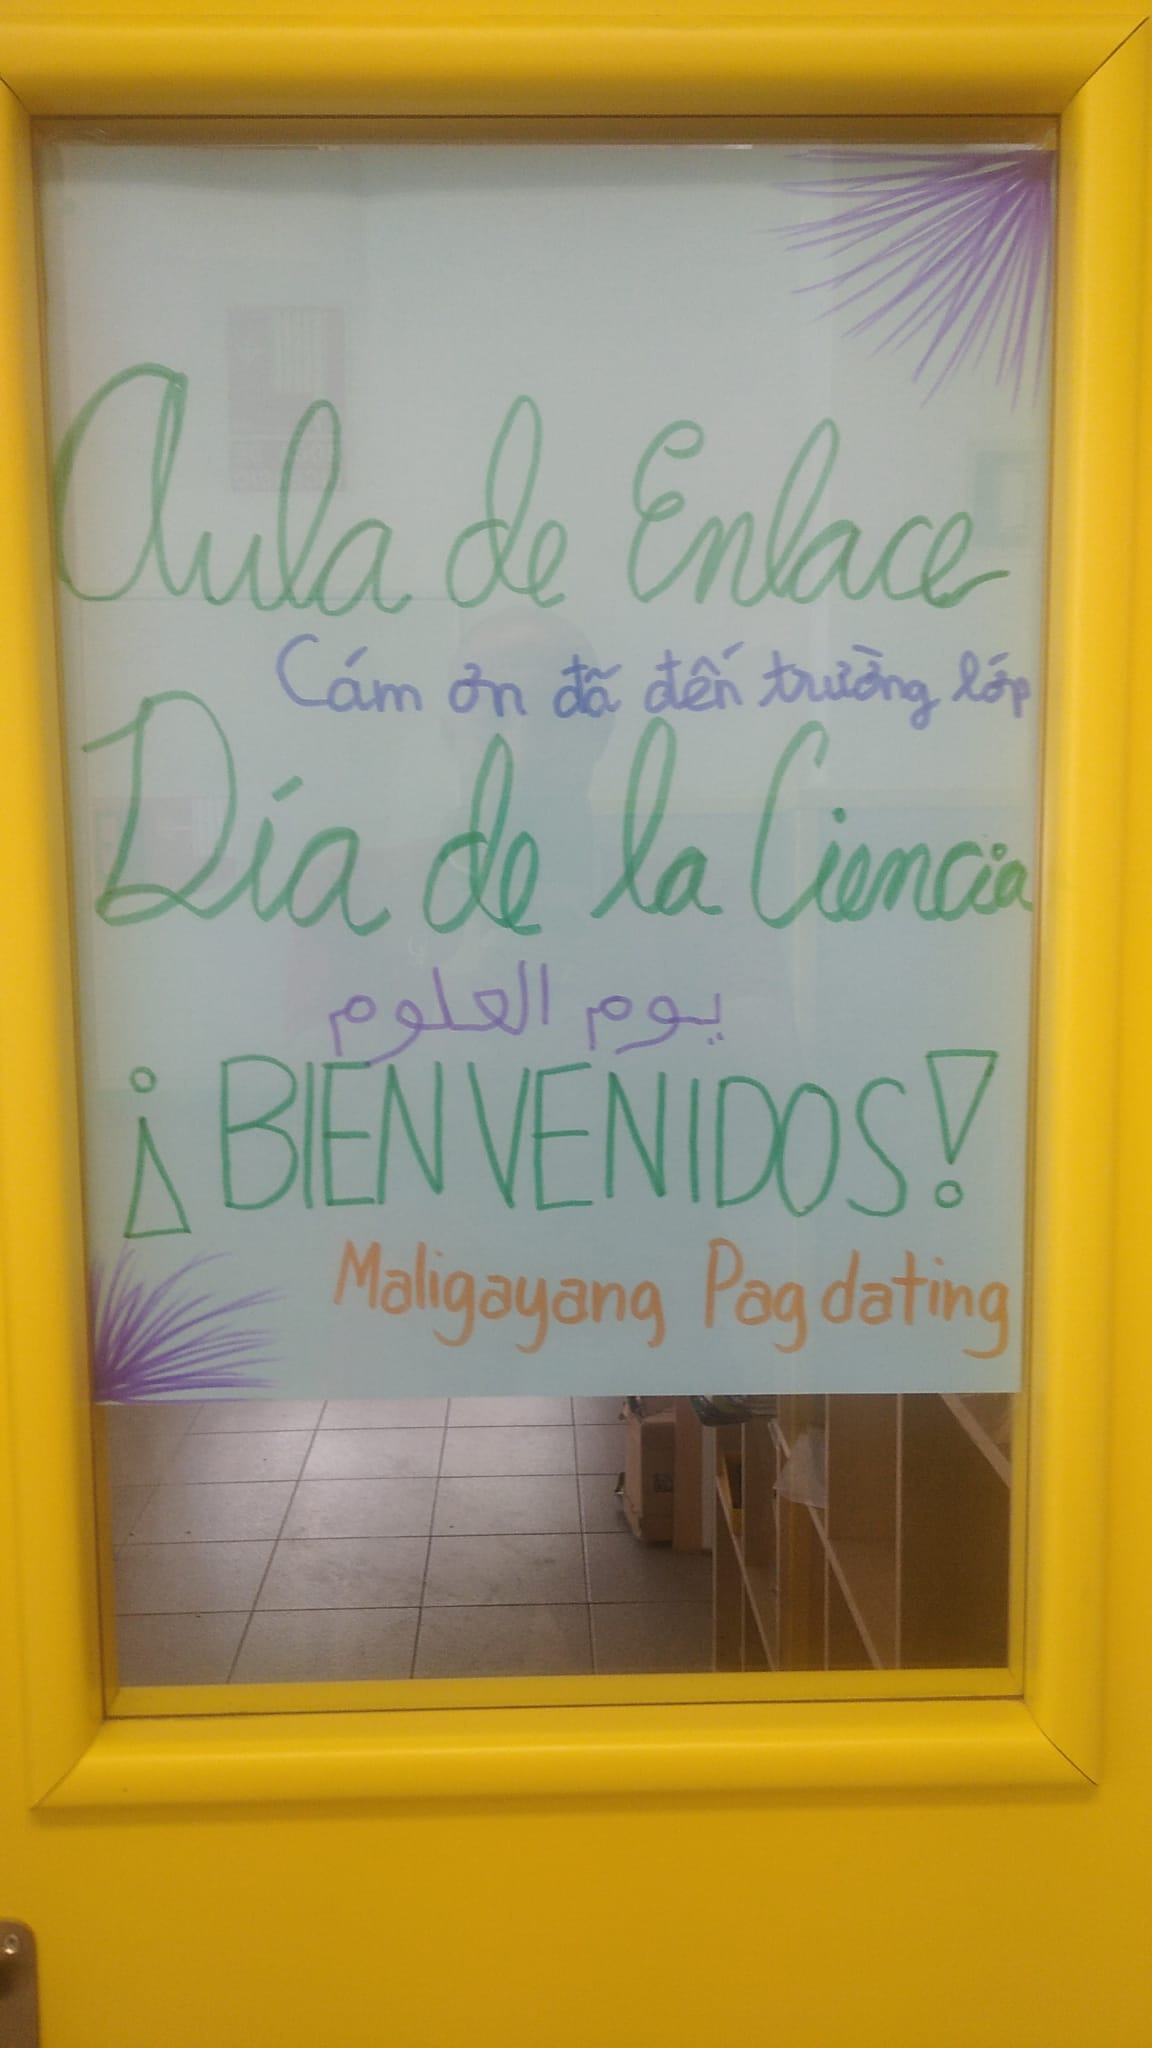 Aula de Enlace
Cám ơn đã đến trường lớp
Día de la Ciencia
يوم العلوم
¡BIENVENIDOS!
Maligayang Pagdating